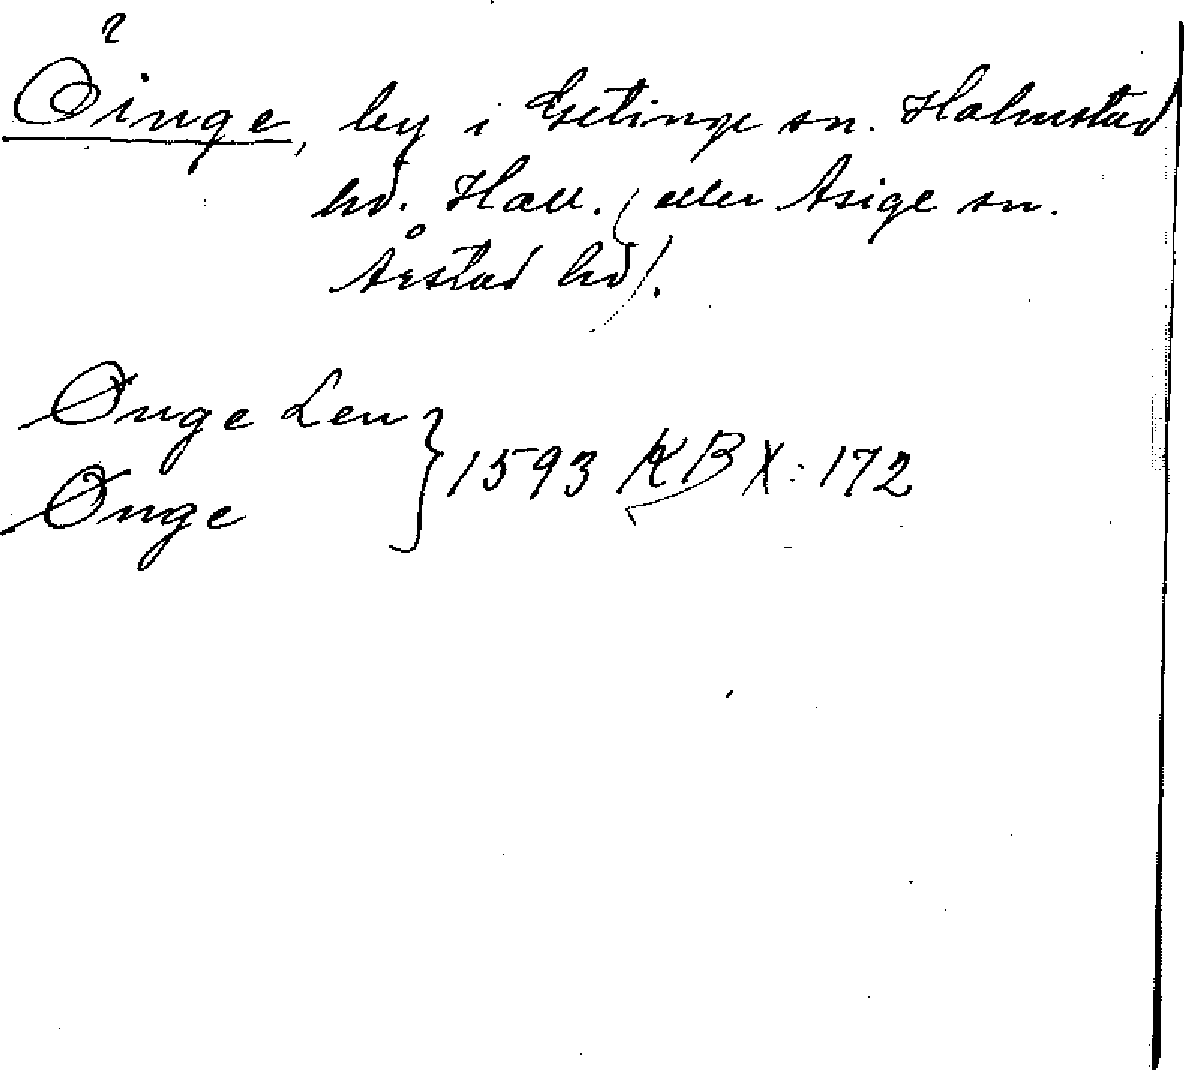 ?
Öinge, by i Getinge sn. Halmstad
hd. Hall. (eller Asige sn.
Årstad hd).
Ønge Len
Ønge } 1593 KB X: 172